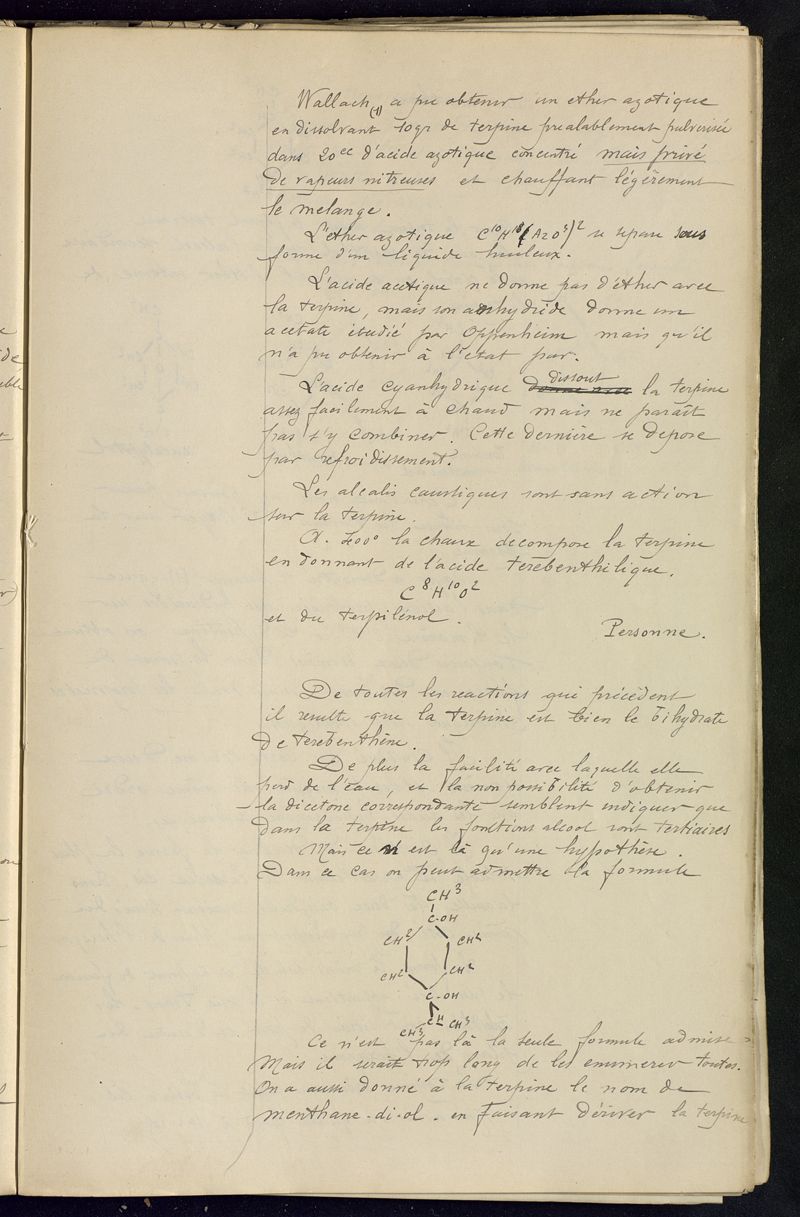 Wallach (1) a pu obtenir un ether azotique
en dissolvant 10gr de terpine prealablement pulverisée
dans 20cc d'acide azotique concentré mais privé
de vapeurs nitreuses et chauffant légèrement
le melange.
L'ether azotique C¹⁰H¹⁸(AzO³)² se separe sous
forme d'un liquide huileux.
L'acide acetique ne donne pas d'éther avec
la terpine, mais son anhydride donne un
acétate étudié par Oppenheim mais qu'il
n'a pu obtenir à l'état pur.
L'acide cyanhydrique dissout la terpine
assez facilement à chaud mais ne parait
pas s'y combiner. Cette dernière se depose
par refroidissement.
Les alcalis caustiques sont sans action
sur la terpine.
A. 400° la chaux decompose la terpine
en donnant de l'acide terebenthilique.
C⁸H¹⁰O²
et du terpilénol.
Personne.
De toutes les reactions qui précédent
il resulte que la terpine est bien le bihydrate
de terebenthène.
De plus la facilité avec laquelle elle
perd de l'eau, et la non possibilité d'obtenir
la dicetone correspondante semblent indiquer que
dans la terpine les fonctions alcool sont tertiaires
Mais ce n'est là qu'une hypothèse.
Dans ce cas on peut admettre la formule
CH³
C-OH
CH² CH²
CH² CH²
C-OH
CH
CH³ CH³
Ce n'est pas là la seule formule admise
Mais il serait trop long de les enumerer toutes.
On a aussi donné à la terpine le nom de
menthane-di-ol. en faisant dériver la terpine